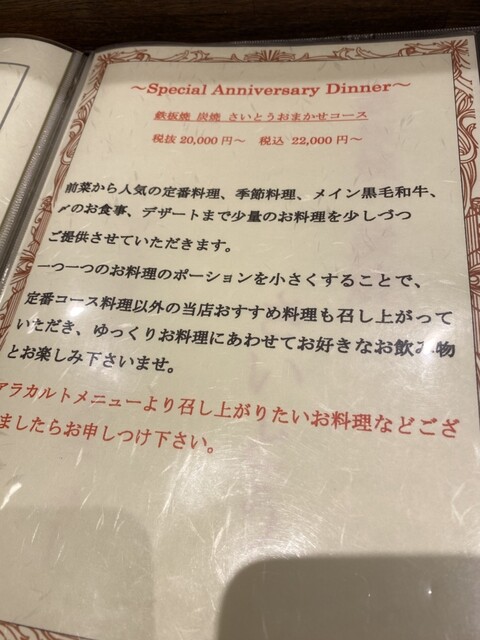 ～Special Anniversary Dinner～
鉄板焼 炭焼 さいとうおまかせコース
税抜 20,000 円～ 税込 22,000 円～
前菜から人気の定番料理、季節料理、メイン黒毛和牛、
〆のお食事、デザートまで少量のお料理を少しづつ
ご提供させていただきます。
一つ一つのお料理のポーションを小さくすることで、
定番コース料理以外の当店おすすめ料理も召し上がって
いただき、ゆっくりお料理にあわせてお好きなお飲み物
とお楽しみ下さいませ。
アラカルトメニューより召し上がりたいお料理などござ
ましたらお申しつけ下さい。